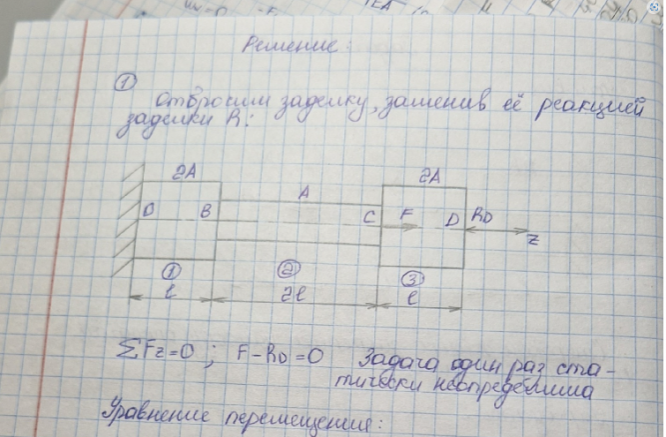 Решение:
① Отбросим заделку, заменив её реакцией
заделки R:
2A
A
2A
D
B
C
F
D
RD
z
①
②
③
l
2l
l
ΣFz=0; F-RD=0 Задача один раз ста-
тически неопределима
Уравнение перемещения: